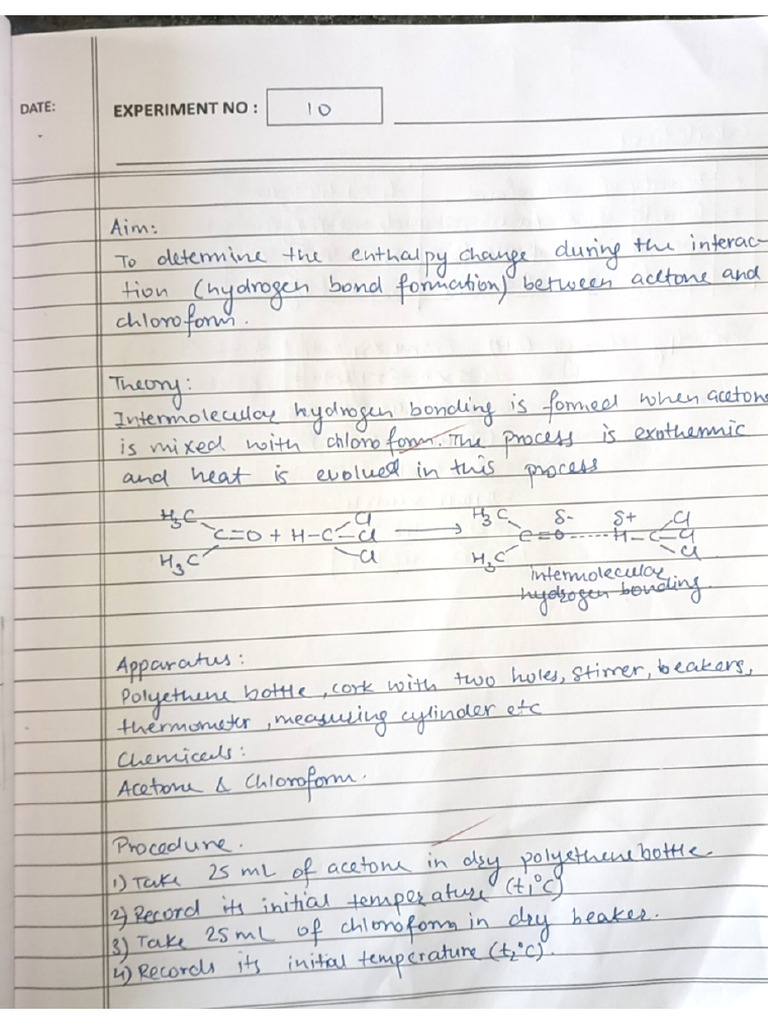 DATE:
EXPERIMENT NO : 10
Aim:
To determine the enthalpy change during the interac-
tion (hydrogen bond formation) between acetone and
chloroform.
Theory:
Intermolecular hydrogen bonding is formed when acetone
is mixed with chloroform. The process is exothermic
and heat is evolved in this process
H3C Cl H3C δ- δ+ Cl
C=O + H-C-Cl → C=O ...... H-C-Cl
H3C Cl H3C Cl
intermolecular
hydrogen bonding.
Apparatus:
Polyethene bottle, cork with two holes, stirrer, beakers,
thermometer, measuring cylinder etc
Chemicals:
Acetone & Chloroform.
Procedure.
1) Take 25 mL of acetone in dry polyethene bottle.
2) Record its initial temperature (t1°C)
3) Take 25 mL of chloroform in dry beaker.
4) Records its initial temperature (t2°C).